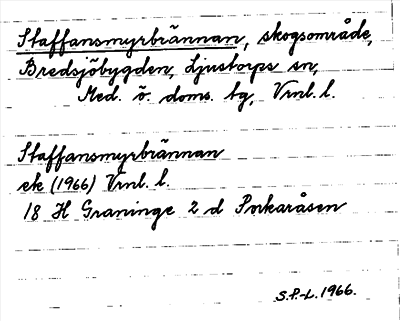 Staffansmyrbrännan, skogsområde,
Bredsjöbygden, Ljustorps sn,
Med. ö. doms. tg, Vrnl. l.
Staffansmyrbrännan
ek (1966) Vrnl. l.
18 H Graninge 2 d Porkaråsen
S.P.-L. 1966.